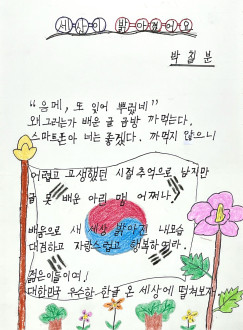 세상이 밝아졌어요
박길분
“음메, 또 잊어 뿌렀네”
왜 그러는가 배운 글 금방 까먹는다.
스마트폰아 너는 좋겠다. 까먹지 않으니
어렵고 고생했던 시절 추억으로 남지만
글 못 배운 아린 맴 어쩌나
배움으로 새 세상 밝아진 내모습
대견하고 자랑스럽고 행복하여라.
젊은이들이여!
대한민국 우수함 한글 온 세상에 떨쳐보자